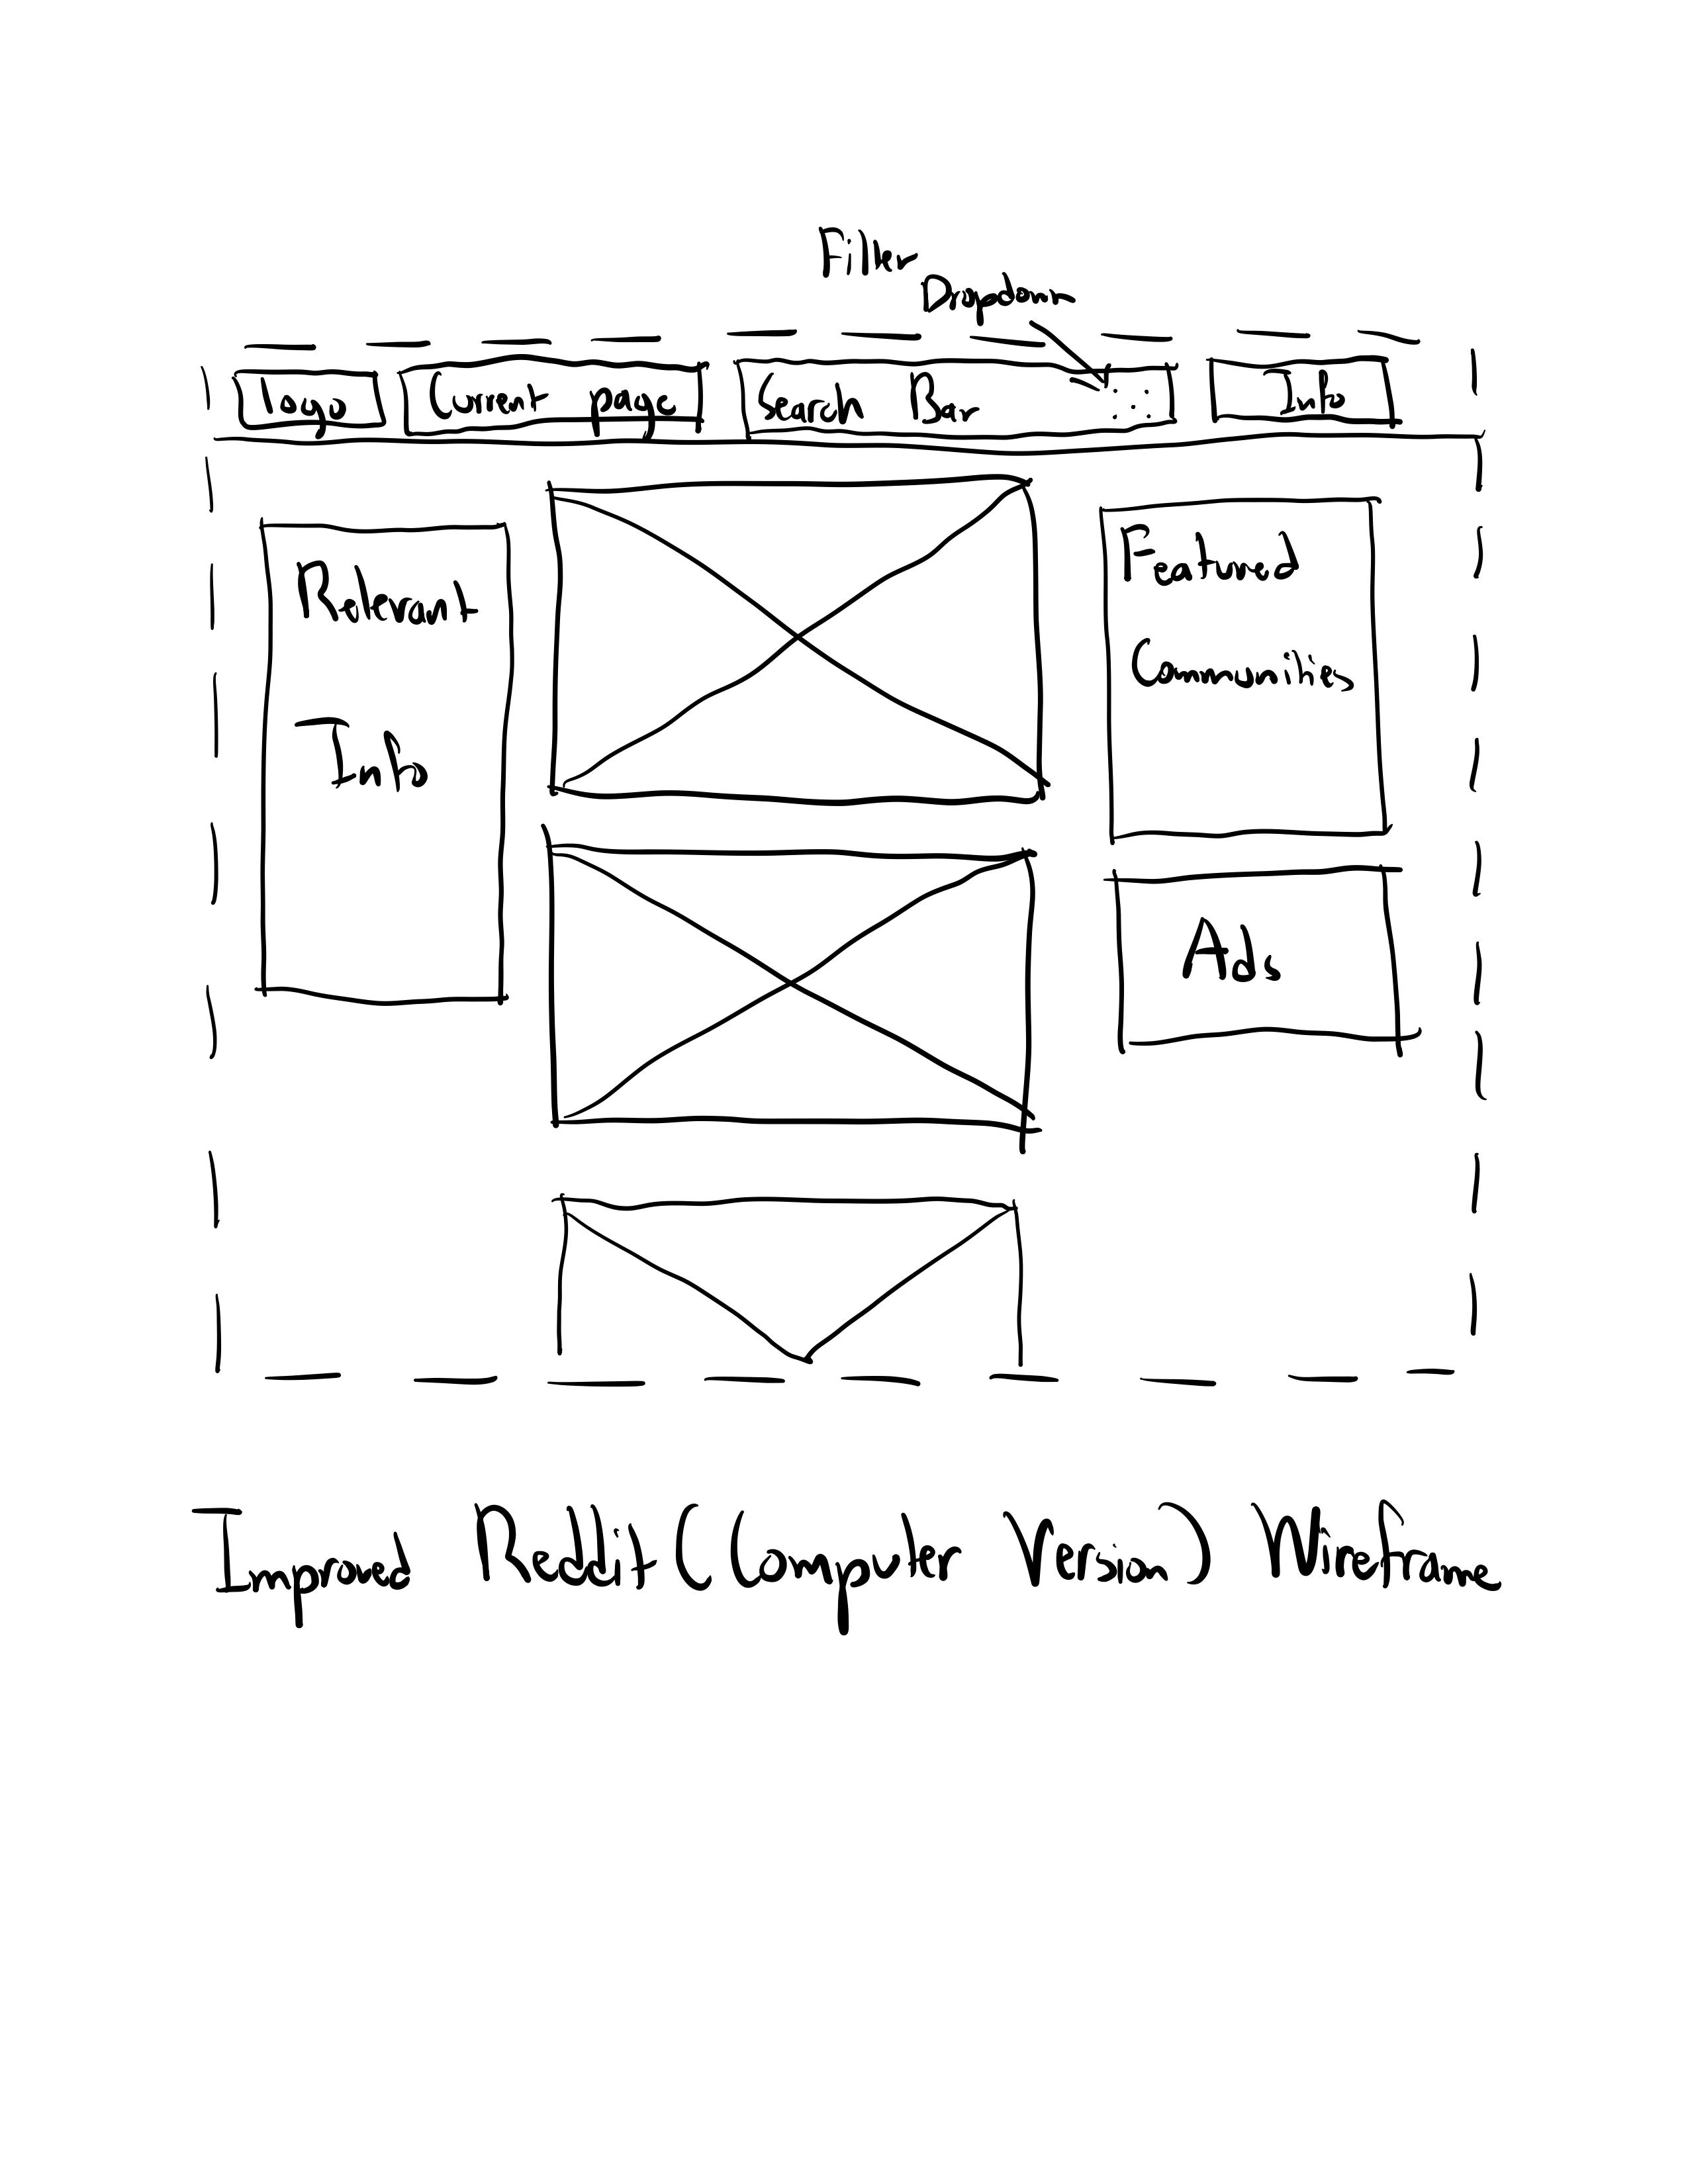 Filter
Dropdown
logo Current page Search Bar Info
Relevant
Info
Featured
Communities
Ads
Improved Reddit (Computer Version) Wireframe